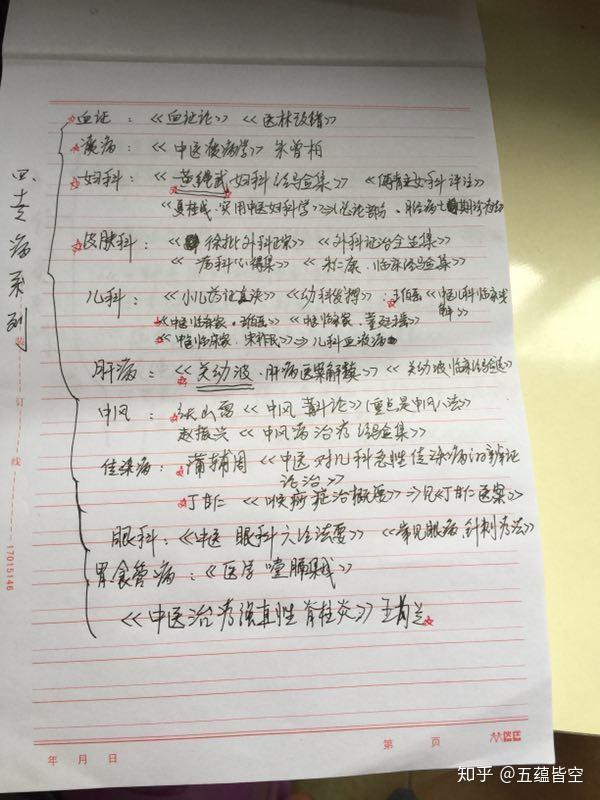 四、专病系列
血证：《血证论》《医林改错》
痰病：《中医痰病学》朱曾柏
妇科：《黄绳武妇科经验集》《傅青主女科评注》
《夏桂成·实用中医妇科学》总论部分、月经病
皮肤科：《徐批外科正宗》《外科证治全生集》
《疡科心得集》《朱仁康临床经验集》
儿科：《小儿药证直诀》《幼科发挥》王伯岳《中医儿科临床浅解》
《中医临床家·王伯岳》《中医临床家·董廷瑶》
《中医临床家·宋祚民》⇒儿科血液病
肝病：《关幼波·肝病医案解读》《关幼波临床经验选》
中风：张山雷《中风斠论》（重点是中风八法）
赵振兴《中风病治疗经验集》
传染病：蒲辅周《中医对几科急性传染病的辨证论治》
丁甘仁《喉痧症治概要》⇒见《丁甘仁医案》
眼科：《中医眼科六经法要》《常见眼病针刺疗法》
胃食管病：《医学噎膈集成》
《中医治疗强直性脊柱炎》
装
订
线
17015146
年 月 日
第 页
知乎 @五蕴皆空